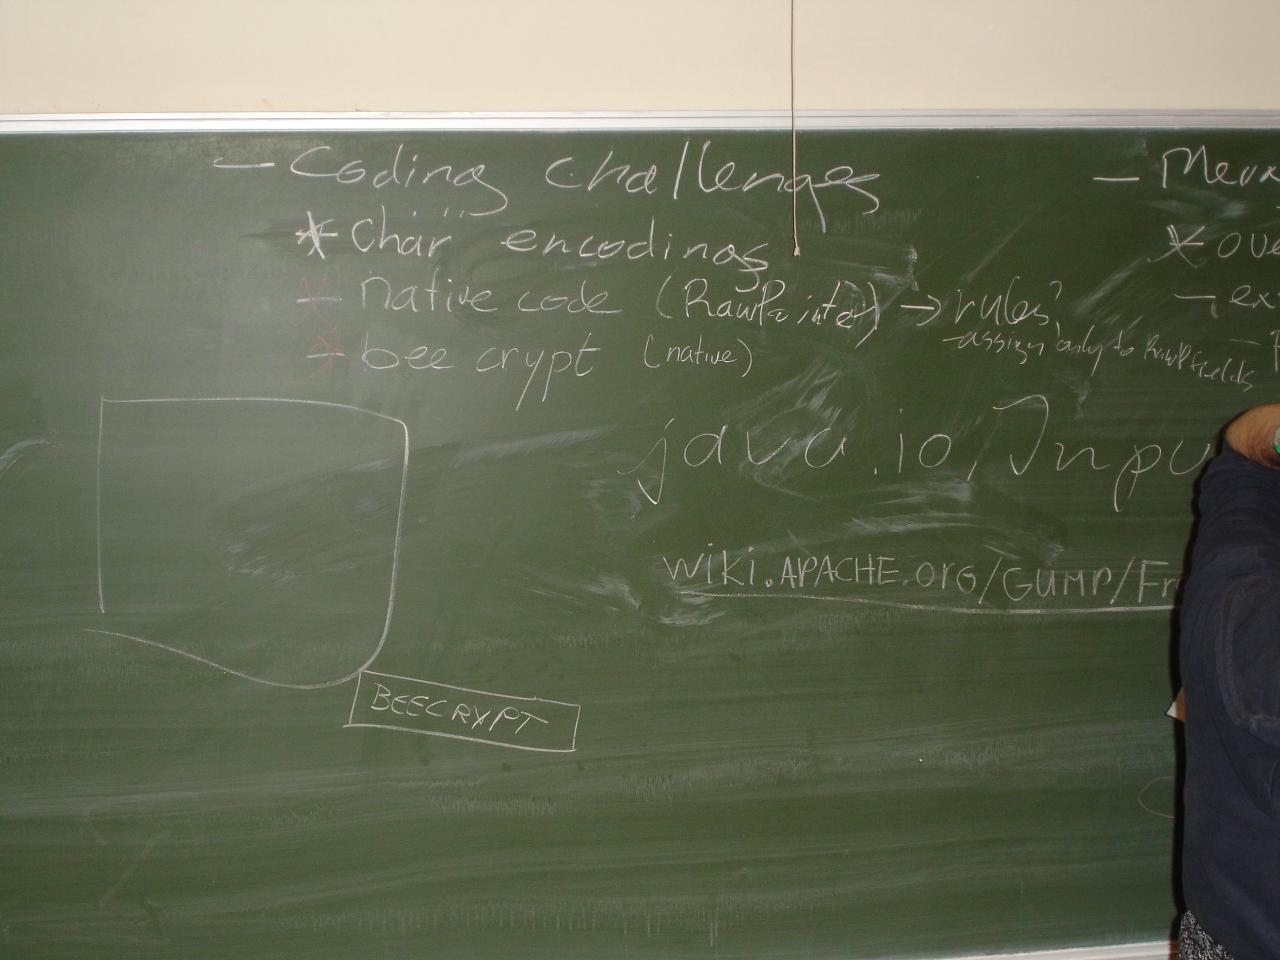 - Coding challenges
* char encodings
- native code (RawPointer) → rules?
- assign only to RawP fields
* bee crypt (native)
java.io.Inpu
wiki.APACHE.org/GUMP/Fr
BEECRYPT
* ove
- ex